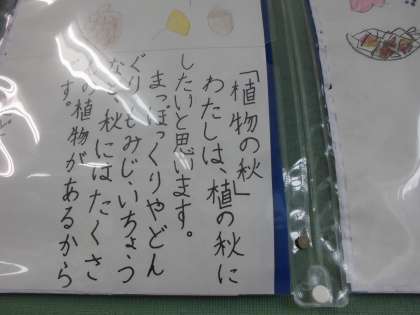 「植物の秋」
わたしは、植の秋に
したいと思います。
まつぼっくりやどん
ぐり、もみじ、いちょう
など、秋にはたくさ
の植物があるから
す。